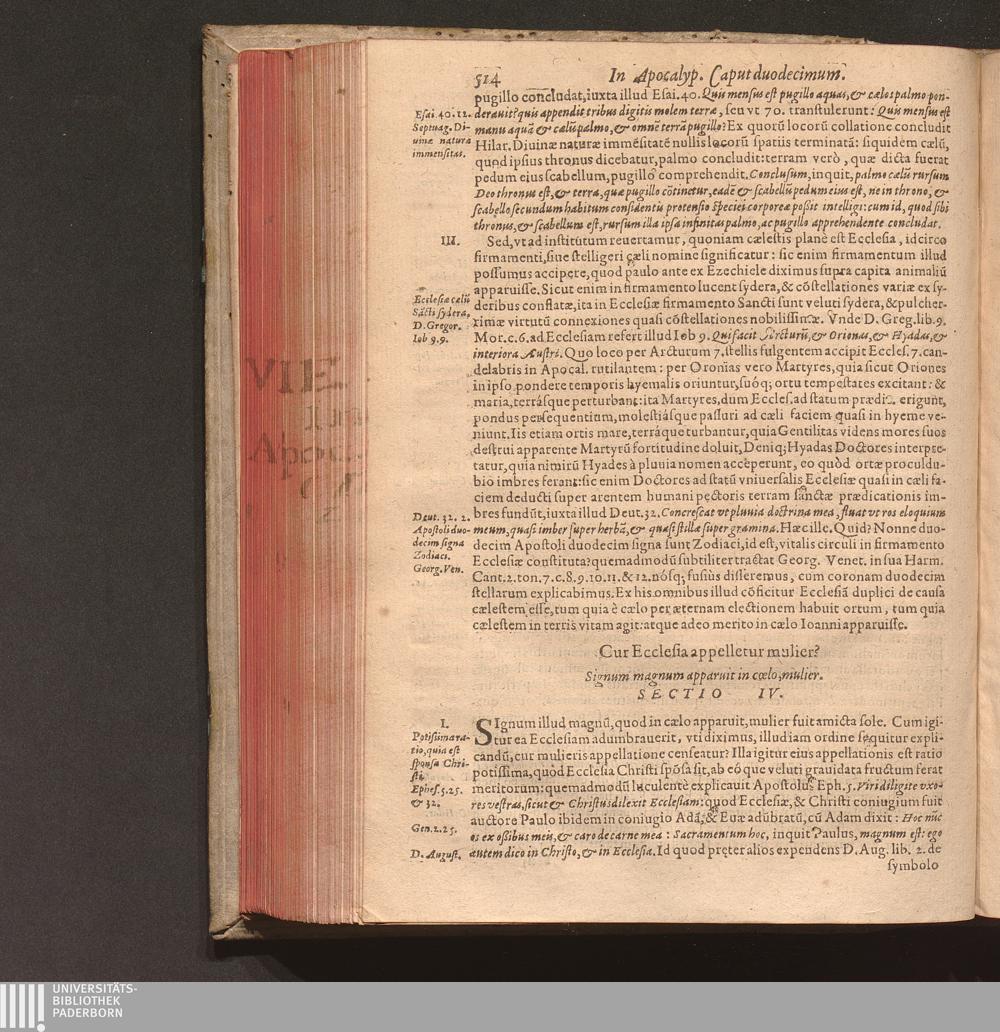 514 In Apocalyp. Caput duodecimum.
pugillo concludat, iuxta illud Esai. 40. Quis mensus est pugillo aquas, & cælos palmo pon-
derauit? quis appendit tribus digitis molem terræ, seu vt 70. transtulerunt: Quis mensus est
manu aquā & cælū palmo, & omnē terrā pugillo? Ex quorū locorū collatione concludit
Hilar. Diuinæ naturæ immēsitatē nullis locorū spatiis terminatā: siquidem cælū,
quod ipsius thronus dicebatur, palmo concludit: terram verò, quæ dicta fuerat
pedum eius scabellum, pugillo comprehendit. Conclusum, inquit, palmo cælū rursum
Deo thronus est, & terra, quæ pugillo cōtinetur, eadē & scabellū pedum eius est, ne in throno, &
scabello secundum habitum considentis protensio speciei corporeæ poßit intelligi: cum id, quod sibi
thronus, & scabellum est, rursum illa ipsa infinitas palmo, ac pugillo apprehendente concludat.
Esai. 40. 12.
Septuag. Di-
uinæ naturæ
immensitas.
III.
Sed, vt ad institutum reuertamur, quoniam cælestis planè est Ecclesia, idcirco
firmamenti, siue stelligeri cæli nomine significatur: sic enim firmamentum illud
possumus accipere, quod paulo ante ex Ezechiele diximus supra capita animaliū
apparuisse. Sicut enim in firmamento lucent sydera, & cōstellationes variæ ex sy-
deribus conflatæ, ita in Ecclesiæ firmamento Sancti sunt veluti sydera, & pulcher-
rimæ virtutū connexiones quasi cōstellationes nobilissimæ. Vnde D. Greg. lib. 9.
Mor. c. 6. ad Ecclesiam refert illud Iob 9. Qui facit Arcturū, & Orionas, & Hyadas, &
interiora Austri. Quo loco per Arcturum 7. stellis fulgentem accipit Eccles. 7. can-
delabris in Apocal. rutilantem: per Orionas vero Martyres, quia sicut Oriones
in ipso pondere temporis hyemalis oriuntur, suóq; ortu tempestates excitant: &
maria, terrásque perturbant: ita Martyres, dum Eccles. ad statum erigunt,
pondus persequentium, molestiásque passuri ad cæli faciem quasi in hyeme ve-
niunt. Iis etiam ortis mare, terráque turbantur, quia Gentilitas videns mores suos
destrui apparente Martyrū fortitudine doluit, Deniq; Hyadas Doctores interpre-
tatur, quia nimirū Hyades à pluuia nomen acceperunt, eo quòd ortæ proculdu-
bio imbres ferant: sic enim Doctores ad statū vniuersalis Ecclesiæ quasi in cæli fa-
ciem deducti super arentem humani pectoris terram sanctæ prædicationis im-
bres fundūt, iuxta illud Deut. 32. Concrescat vt pluuia doctrina mea, fluat vt ros eloquium
meum, quasi imber super herbā, & quasi stillæ super gramina. Hæc ille. Quid? Nonne duo-
decim Apostoli duodecim signa sunt Zodiaci, id est, vitalis circuli in firmamento
Ecclesiæ constituta? quemadmodū subtiliter tractat Georg. Venet. in sua Harm.
Cant. 2. ton. 7. c. 8. 9. 10. 11. & 12. nósq; fusiùs disseremus, cum coronam duodecim
stellarum explicabimus. Ex his omnibus illud cōficitur Ecclesiā duplici de causa
cælestem esse, tum quia è cælo per æternam electionem habuit ortum, tum quia
cælestem in terris vitam agit: atque adeo merito in cælo Ioanni apparuisse.
Ecclesiæ cælū
Sācti sydera.
D. Gregor.
Iob 9. 9.
Deut. 32. 2.
Apostoli duo-
decim signa
Zodiaci.
Georg. Ven.
Cur Ecclesia appelletur mulier?
Signum magnum apparuit in cœlo, mulier.
SECTIO IV.
SIgnum illud magnū, quod in cælo apparuit, mulier fuit amicta sole. Cum igi-
tur ea Ecclesiam adumbrauerit, vti diximus, illud iam ordine sequitur expli-
candū, cur mulieris appellatione censeatur? Illa igitur eius appellationis est ratio
potissima, quòd Ecclesia Christi spōsa sit, ab eóque veluti grauidata fructum ferat
meritorum: quemadmodū luculenter explicauit Apostolus Eph. 5. Viri diligite vxo-
res vestras, sicut & Christus dilexit Ecclesiam: quod Ecclesiæ, & Christi coniugium fuit
auctore Paulo ibidem in coniugio Adā, & Euæ adūbratū, cū Adam dixit: Hoc nūc
os ex oßibus meis, & caro de carne mea: Sacramentum hoc, inquit Paulus, magnum est: ego
autem dico in Christo, & in Ecclesia. Id quod præter alios expendens D. Aug. lib. 2. de
symbolo
I.
Potissima ra-
tio, quia est
sponsa Chri-
sti.
Ephes. 5. 25.
& 32.
Gen. 2. 23.
D. August.
UNIVERSITÄTS-
BIBLIOTHEK
PADERBORN